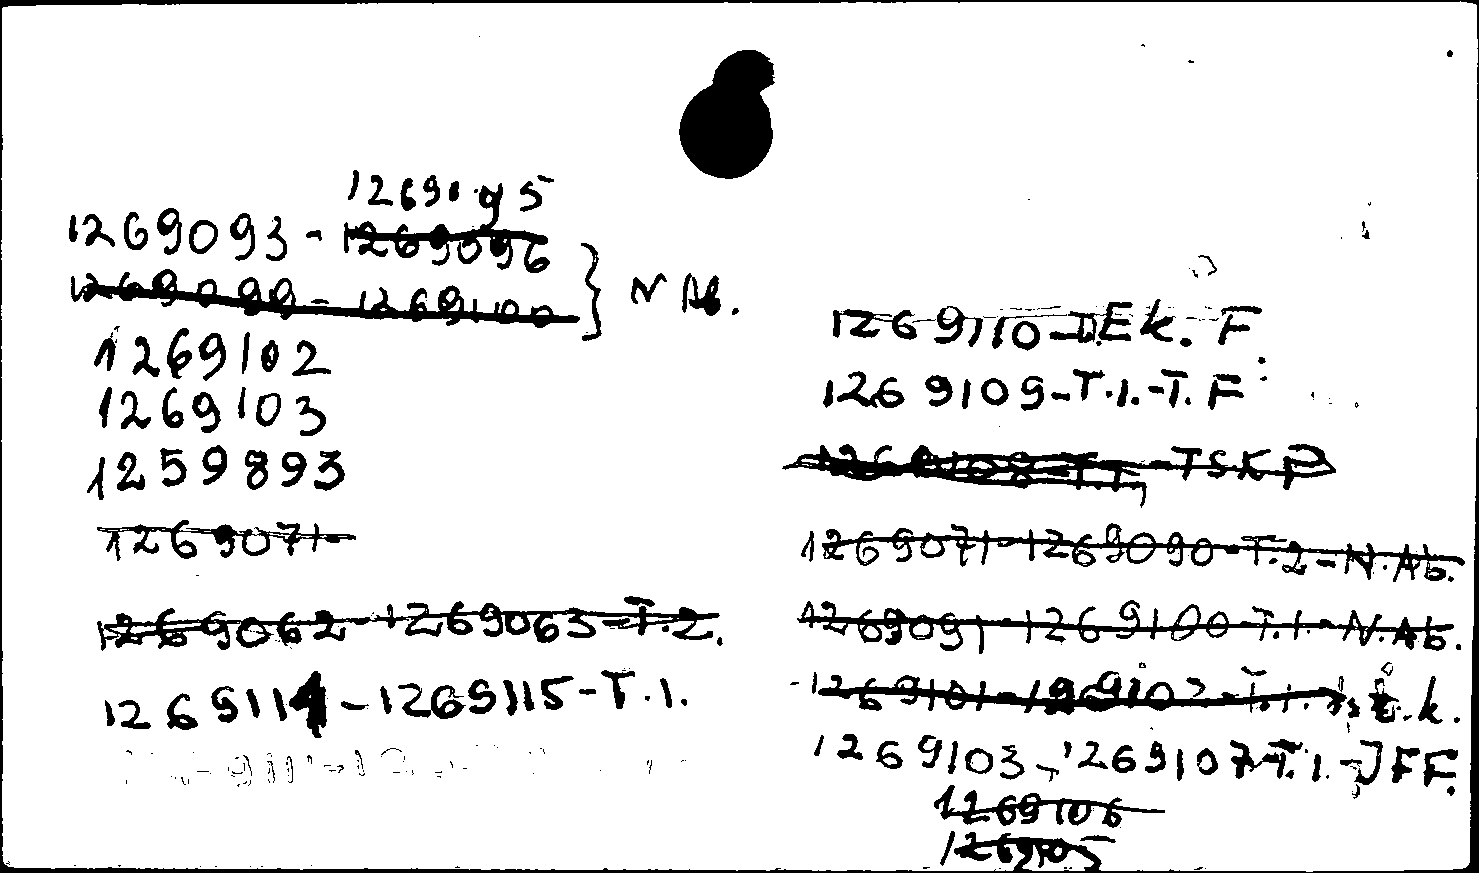 1269095
1269093 - 1269096
1269099 - 1269100 } N Ab.
1269102
1269103
1259893
1269071-
1269062 - 1269063 - T.2.
1269111 - 1269115 - T.I.
1269110 - I.Ek. F
1269109 - T.I. - T.F
1269108 - T.I, - TSKP
1269071 - 1269090 - T.2 - N.Ab.
1269091 - 1269100 - T.I. - N.Ab.
1269101 - 1269102 - T.I. .k.
1269103 - 1269107 - T.I. - JFF.
1269106
1269105